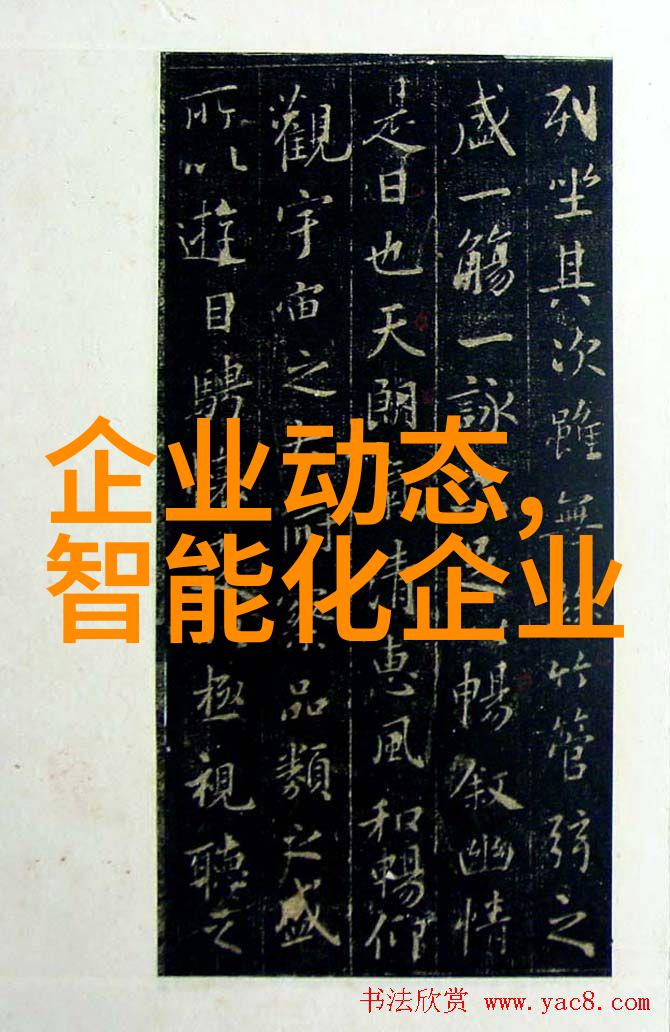 列坐其次雖無竹管弦之
盛一觴一詠暢叙幽情
是日也天朗清惠風和暢仰
觀宇宙之察品類之盛
所以遊目騁極視聽之
企业动态,
智能化企业
书法欣赏 www.yac8.com